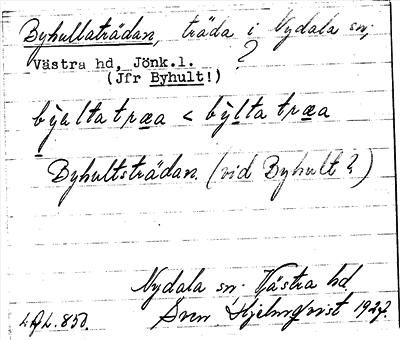 Byhultaträdan, träda i Nydala sn,
Västra hd, Jönk.l. ?
(Jfr Byhult!)
bỳaltatræa < bỳlta træa
Byhultsträdan (vid Byhult?)
Nydala sn. Västra hd.
L.A.L. 850. Sven Hjelmqvist 1927.